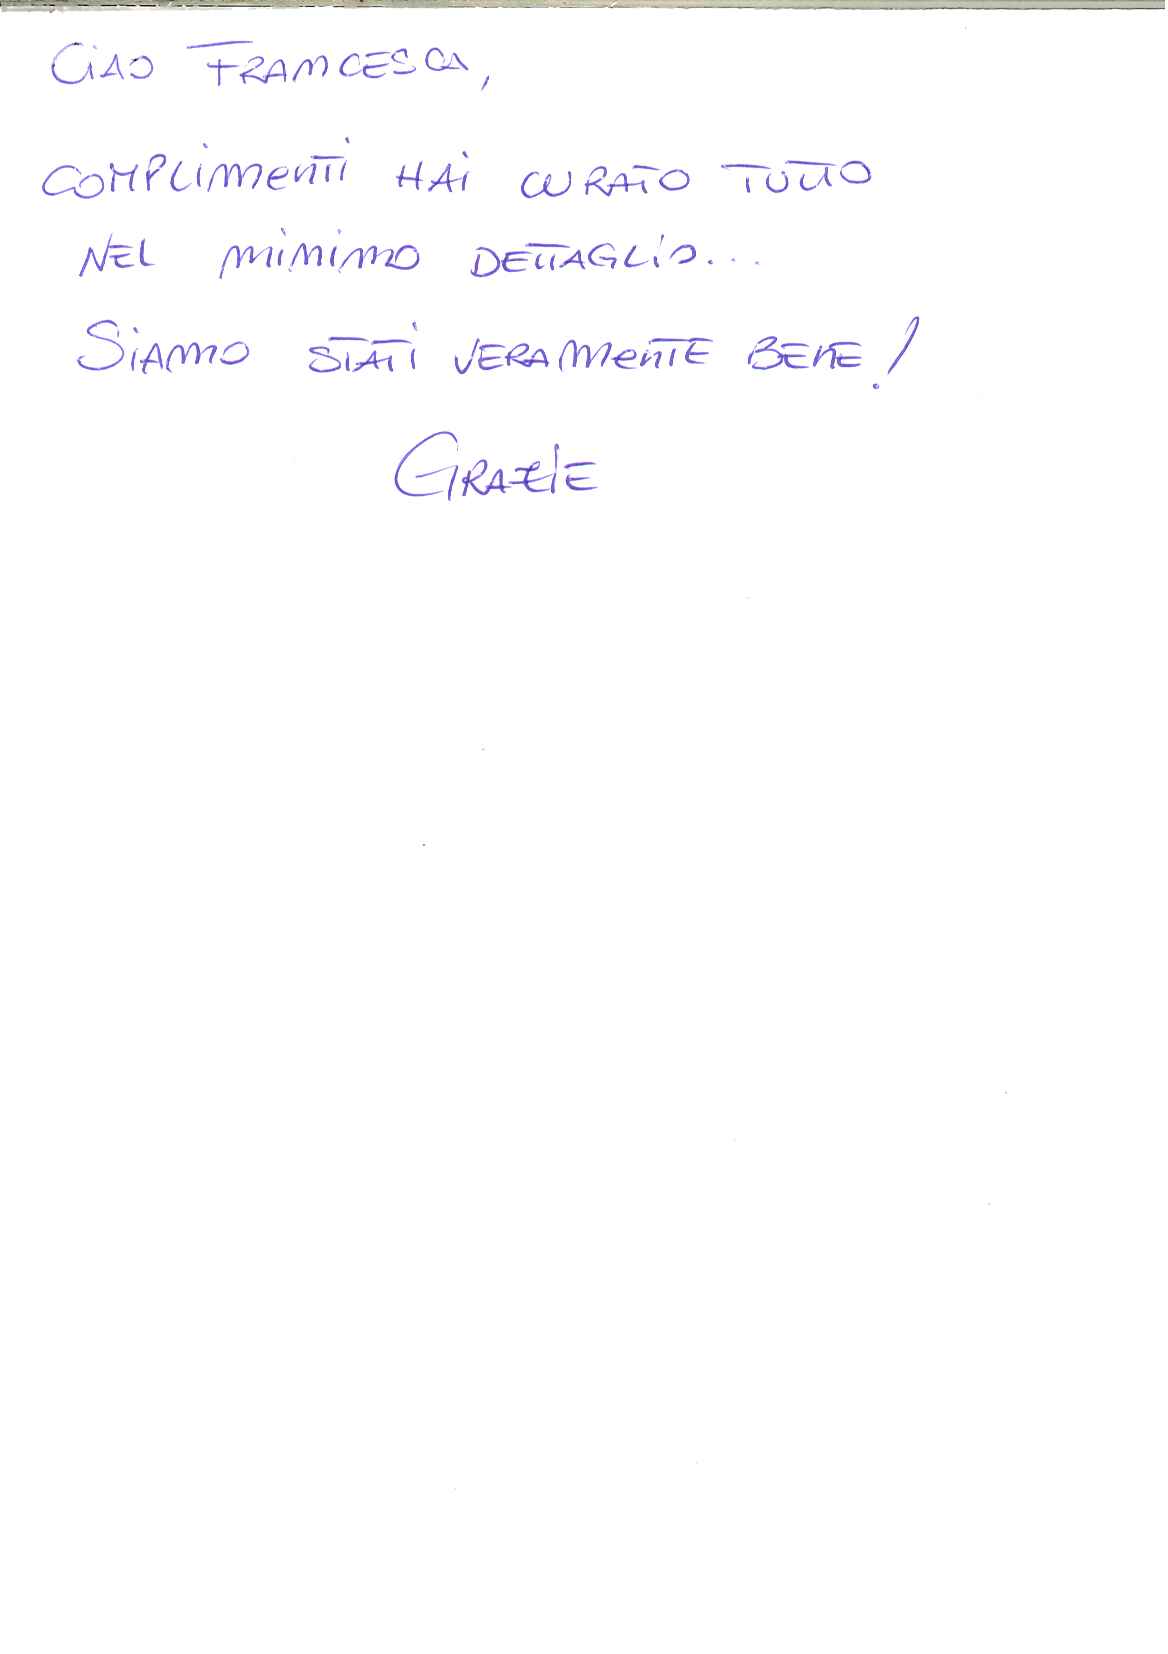 Ciao FRANCESCA,
COMPLIMENTI HAI CURATO TUTTO
NEL MINIMO DETTAGLIO...
SIAMO STATI VERAMENTE BENE!
GRAZIE